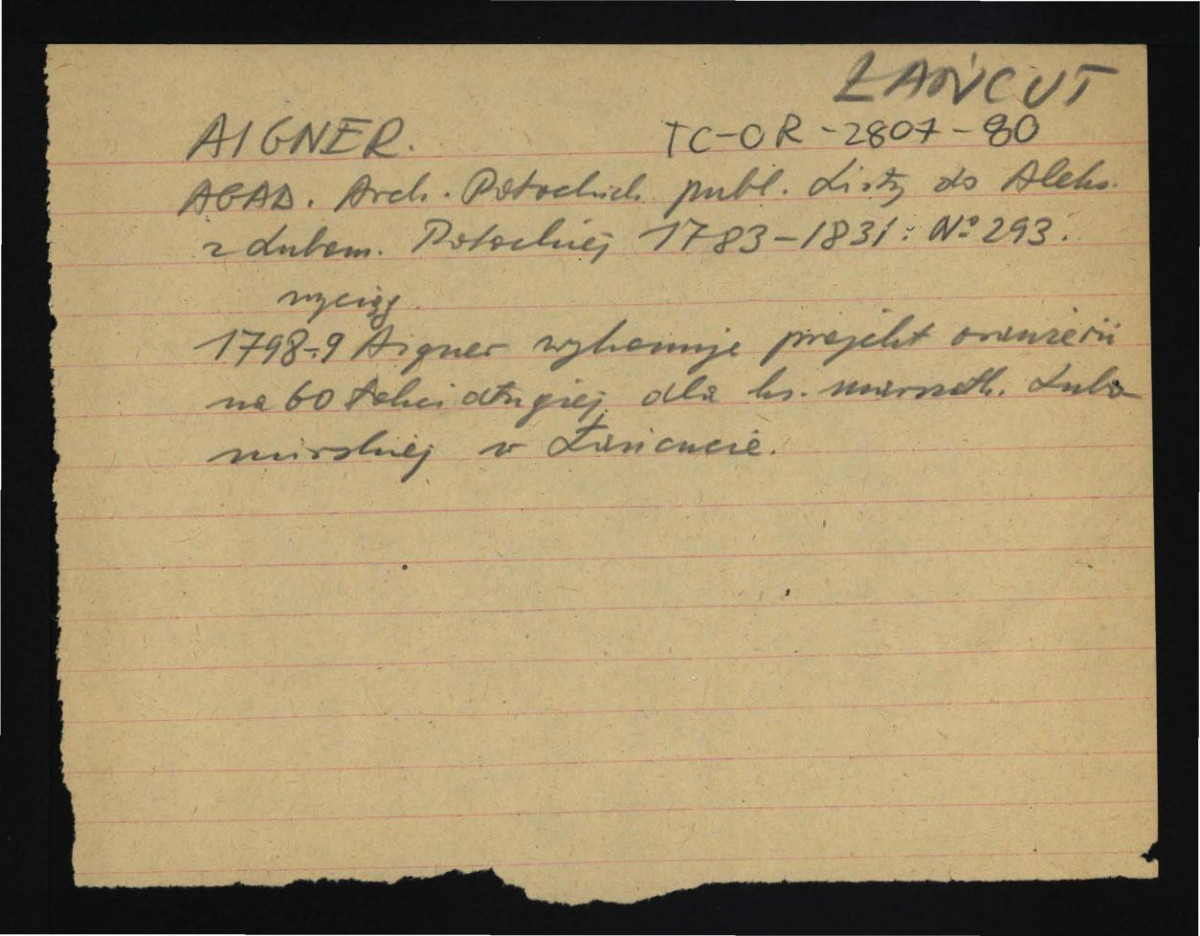 ŁAŃCUT
AIGNER. TC-OR-2807-80
AGAD. Arch. Potockich publ. Listy do Aleks.
z Lubom. Potockiej 1783-1831: No 293.
wyciąg.
1798-9 Aigner wykonuje projekt oranżerii
na 60 łokci długiej dla ks. marszałk. Lubo-
mirskiej w Łańcucie.